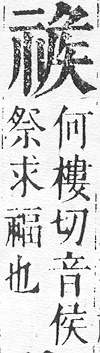 何樓切音侯
祭求福也